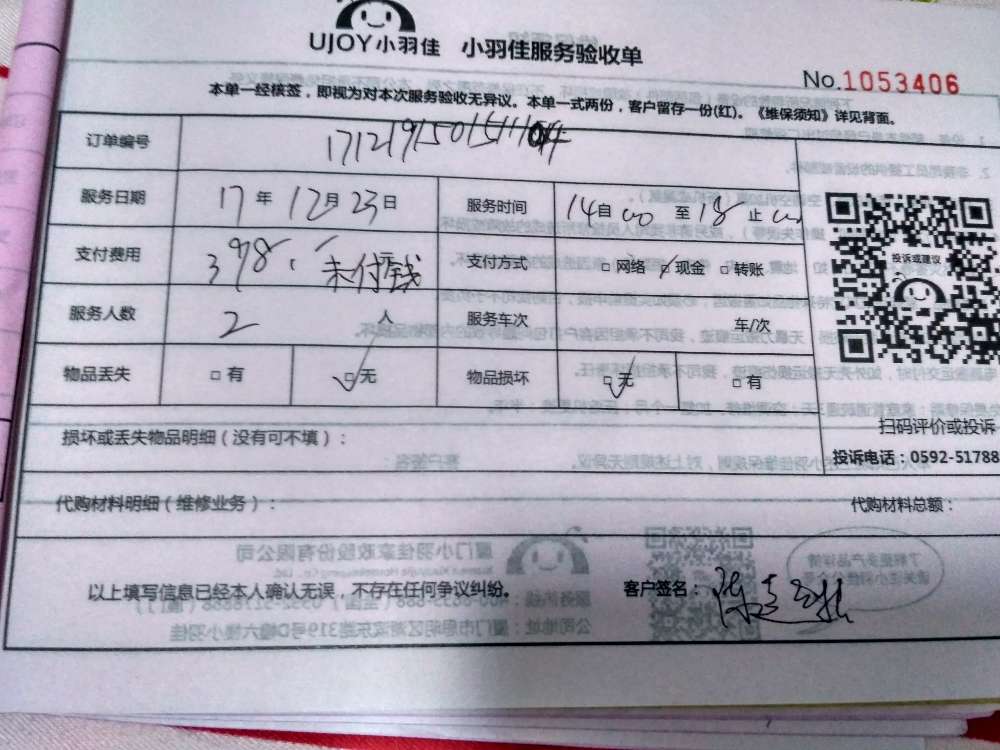 UJOY小羽佳 小羽佳服务验收单
No.1053406
本单一经核签，即视为对本次服务验收无异议。本单一式两份，客户留存一份(红)。《维保须知》详见背面。
订单编号
服务日期 17年12月23日 服务时间 14自00至18止00
支付费用 398. 未付钱 支付方式 □网络 ☑现金 □转账
服务人数 2人 服务车次 车/次
物品丢失 □有 ☑无 物品损坏 ☑无 □有
投诉或建议
扫码评价或投诉
投诉电话：0592-51788
损坏或丢失物品明细（没有可不填）：
代购材料明细（维修业务）： 代购材料总额：
以上填写信息已经本人确认无误，不存在任何争议纠纷。 客户签名：